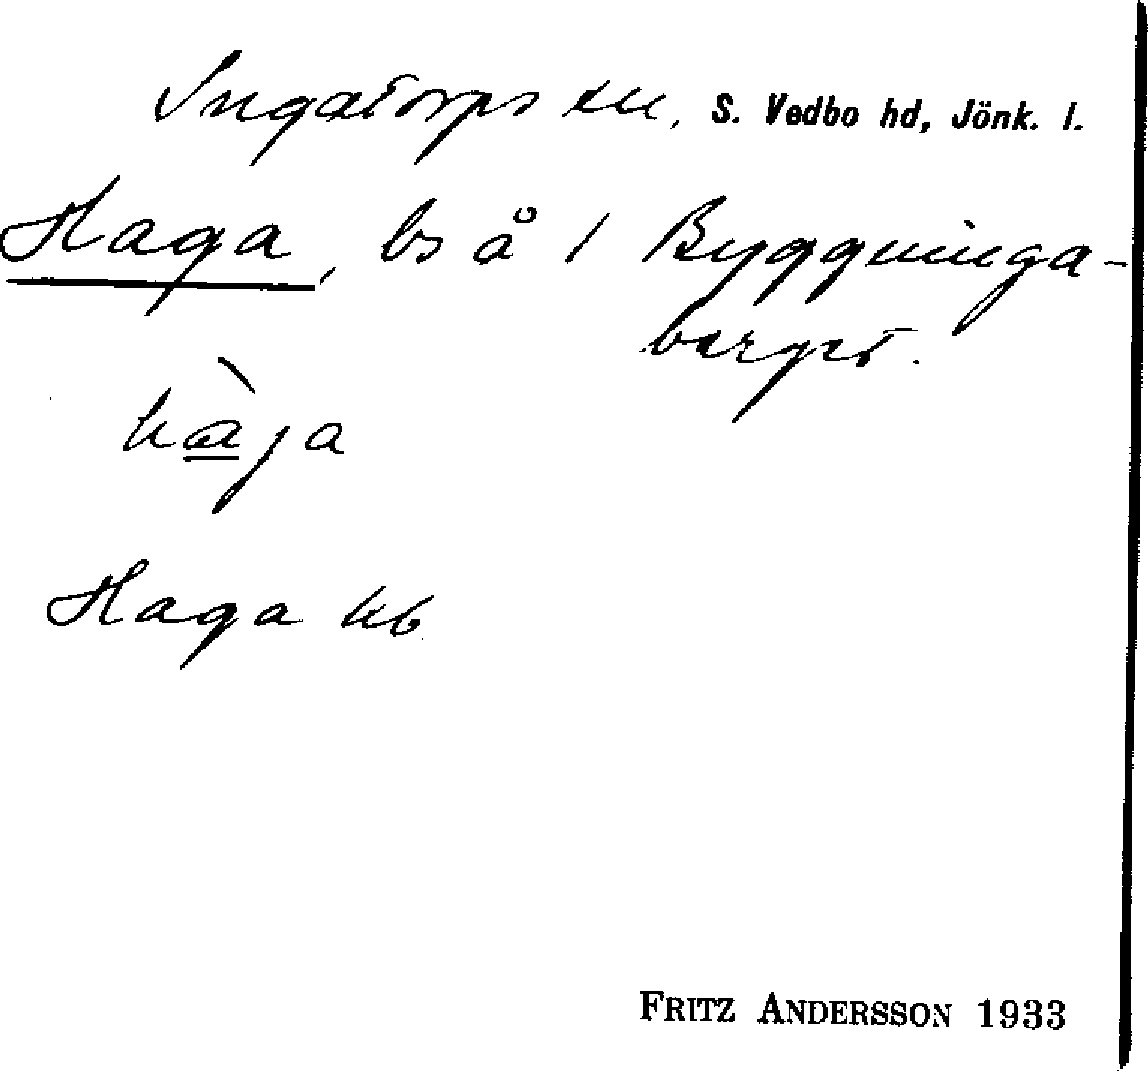 Ingatorps sn, S. Vedbo hd, Jönk. l.
Haga, bs å 1 Byggninga-
berget.
hàja
Haga kb
FRITZ ANDERSSON 1933